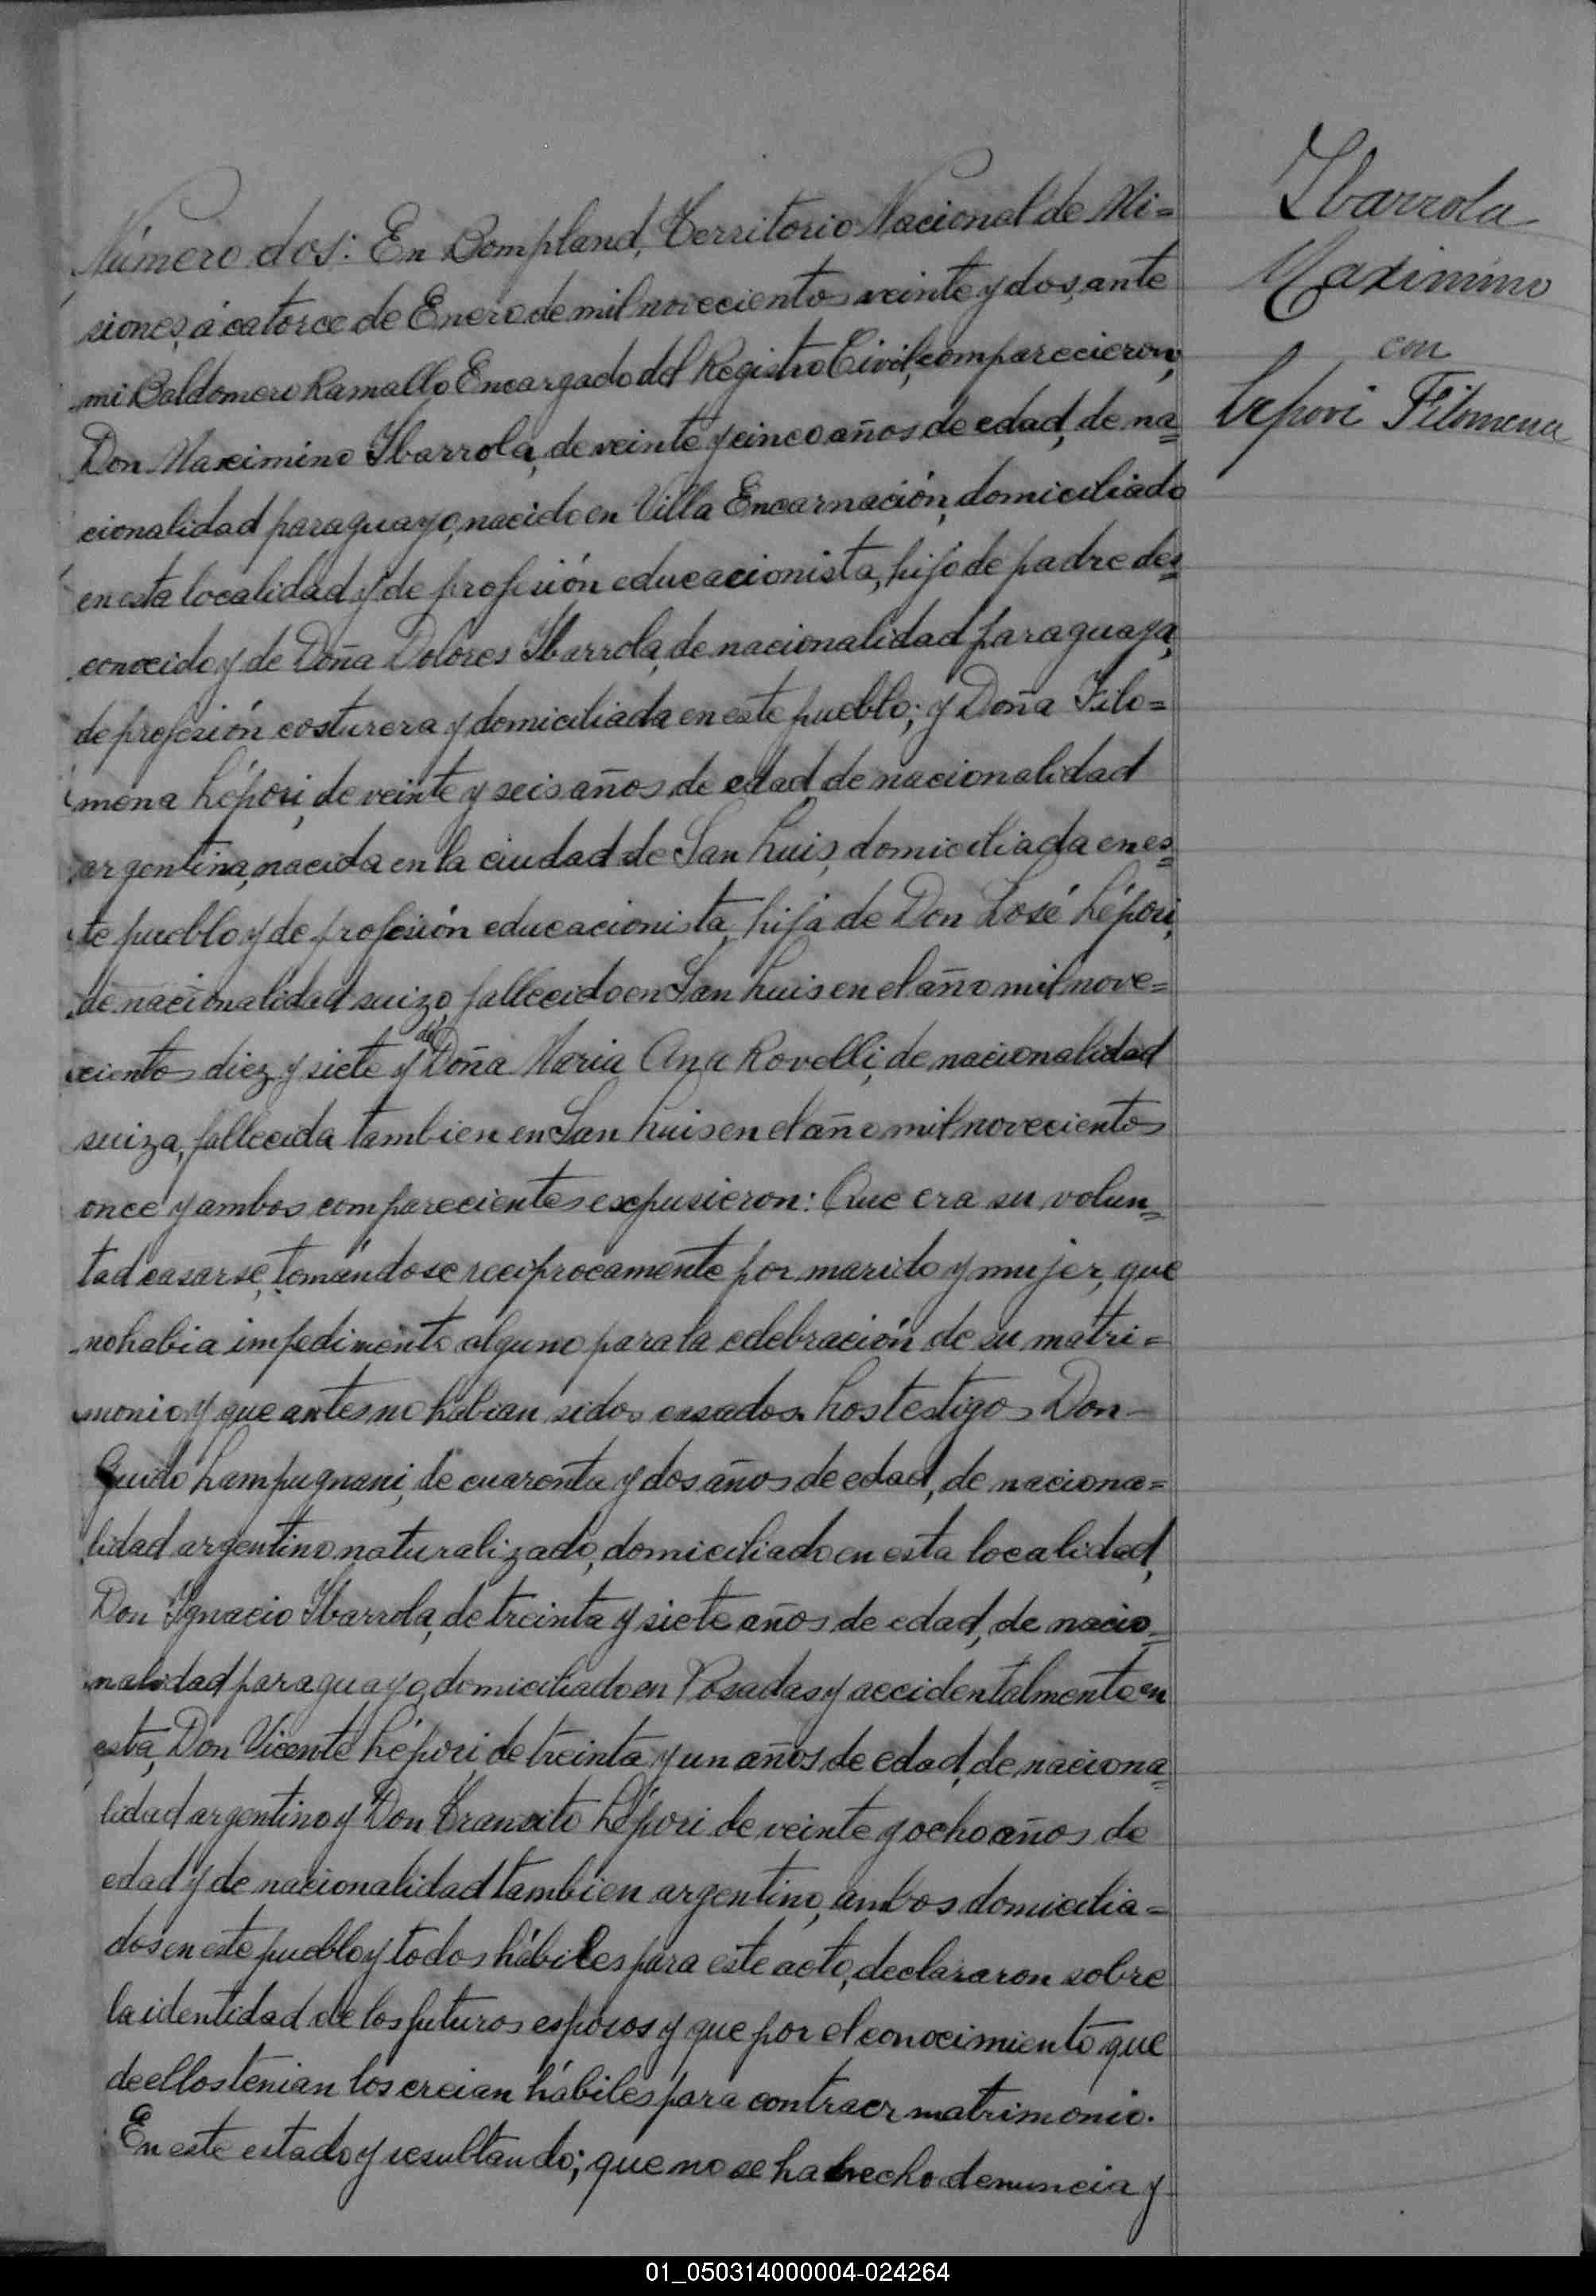 Número dos: En Bompland, Territorio Nacional de Mi=
siones, á catorce de Enero de mil novecientos veinte y dos, ante
mi Baldomero Ramallo Encargado del Registro Civil, comparecieron,
Don Maximino Ibarrola, de veinte y cinco años de edad, de na=
cionalidad paraguayo, nacido en Villa Encarnación, domiciliado
en esta localidad y de profesión educacionista, hijo de padre des=
conocido y de Doña Dolores Ibarrola, de nacionalidad paraguaya,
de profesión costurera y domiciliada en este pueblo; y Doña Filo=
mena Lépori, de veinte y seis años de edad, de nacionalidad
argentina, nacida en la ciudad de San Luis, domiciliada en es=
te pueblo y de profesión educacionista, hija de Don José Lépori,
de nacionalidad suizo, fallecido en San Luis en el año mil nove=
cientos diez y siete y de Doña Maria Ana Rovelli, de nacionalidad
suiza, fallecida tambien en San Luis en el año mil novecientos
once y ambos comparecientes expusieron: Que era su volun=
tad casarse, tomándose reciprocamente por marido y mujer, que
no habia impedimento alguno para la celebración de su matri=
monio y que antes no habian sidos casados. Los testigos Don
Guido Lampugnani, de cuarenta y dos años de edad, de naciona=
lidad argentino naturalizado, domiciliado en esta localidad,
Don Ignacio Ibarrola, de treinta y siete años de edad, de nacio=
nalidad paraguayo, domiciliado en Posadas y accidentalmente en
esta, Don Vicente Lépori, de treinta y un años de edad, de naciona=
lidad argentino y Don Transito Lépori de veinte y ocho años de
edad y de nacionalidad tambien argentino, ambos domicilia=
dos en este pueblo y todos hábiles para este acto, declararon sobre
la identidad de los futuros esposos y que por el conocimiento que
de ellos tenian los creian hábiles para contraer matrimonio.
En este estado y resultando; que no se ha hecho denuncia y
Ibarrola
Maximino
con
Lepori Filomena
01_050314000004-024264